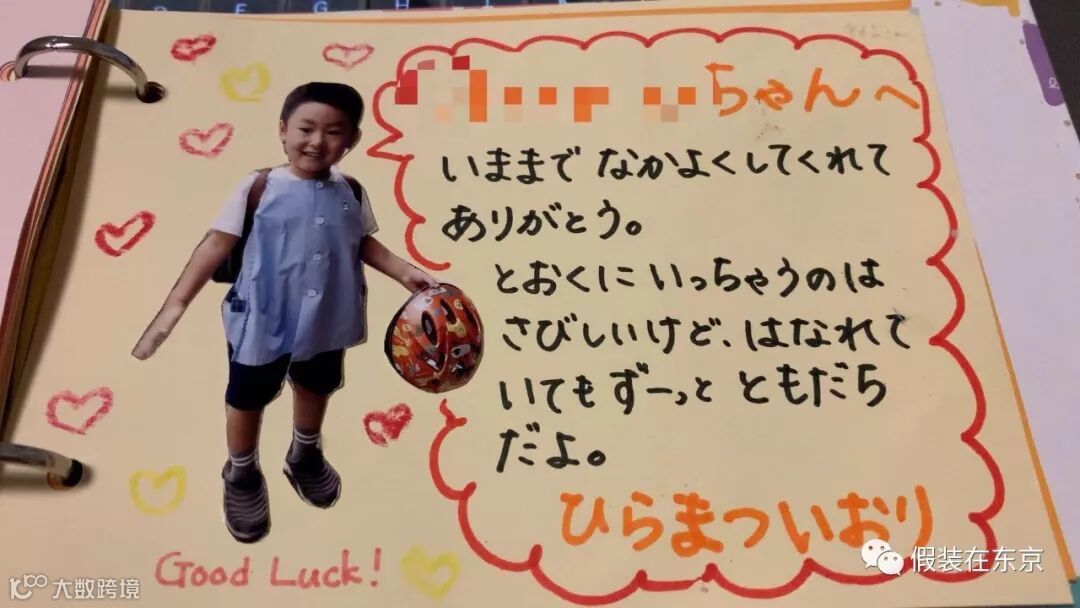 ちゃんへ
いままで なかよくしてくれて
ありがとう。
とおくに いっちゃうのは
さびしいけど、はなれて
いても ずーっと ともだち
だよ。
ひらまつ いおり
Good Luck!
大数跨境
假装在东京